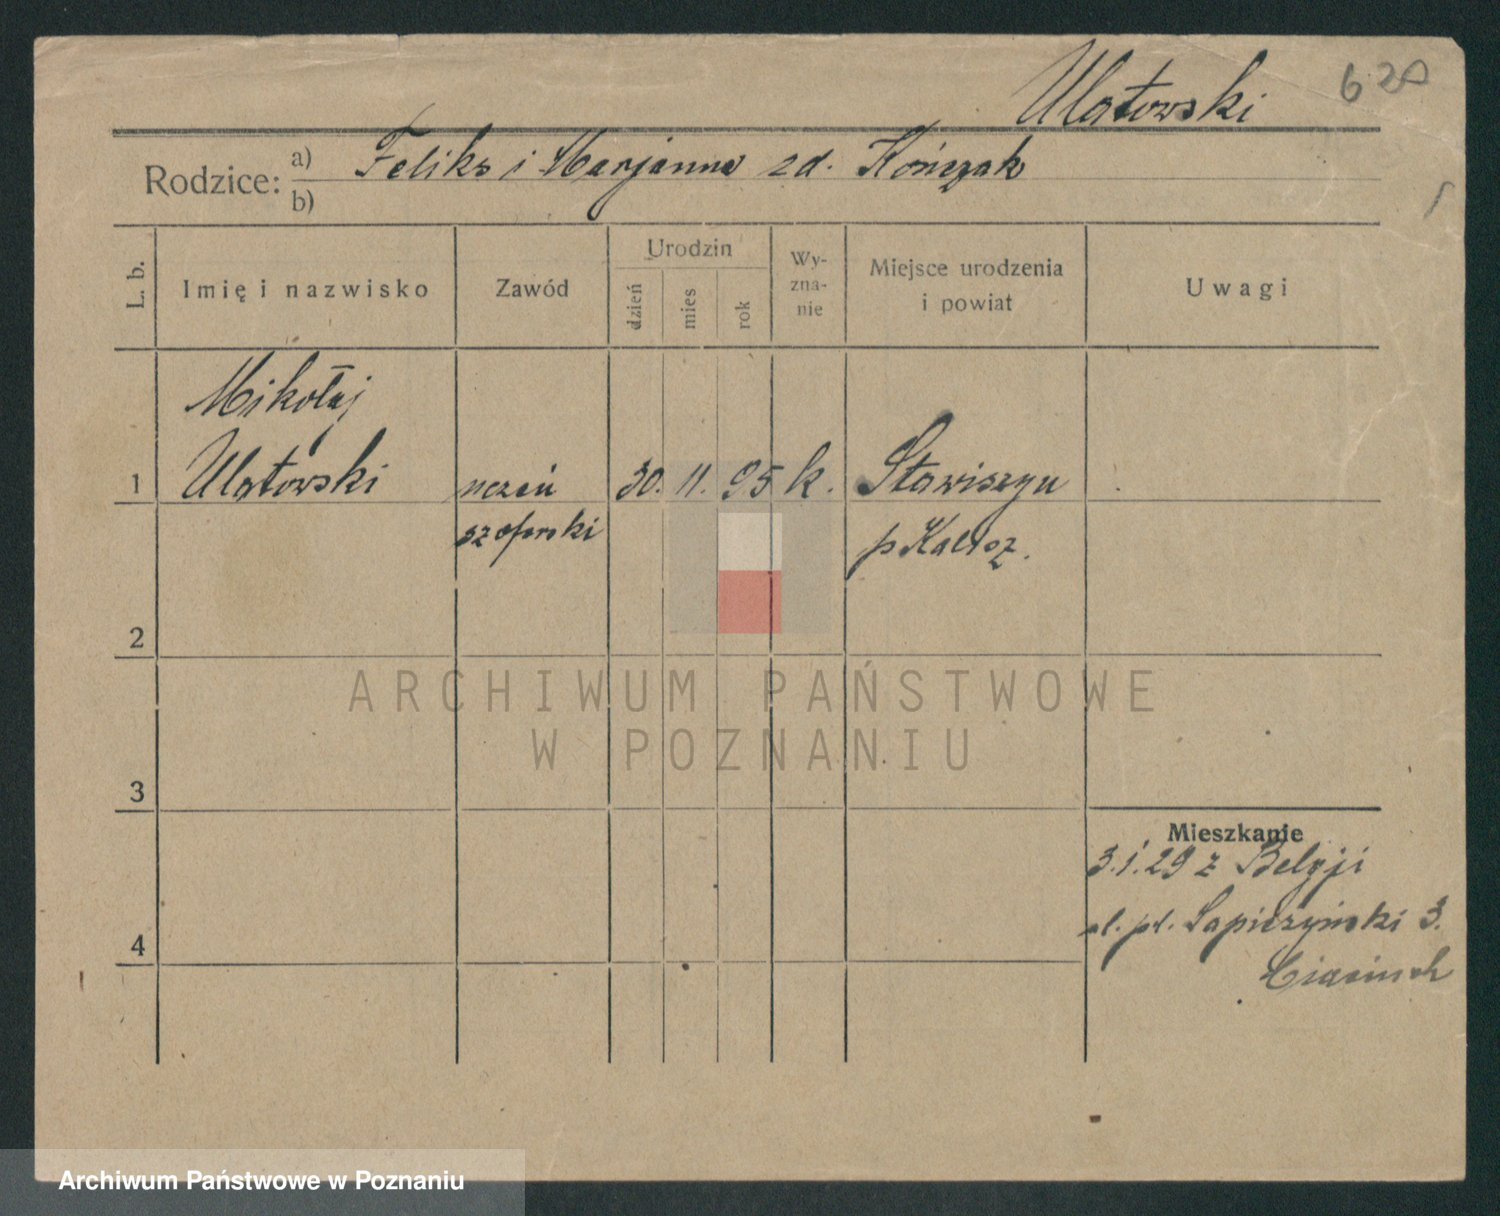 Ulatowski 620
Rodzice: a) Feliks i Marjanna zd. Kończak
b)
L. b.
Imię i nazwisko
Zawód
Urodzin
dzień
mies
rok
Wy-
zna-
nie
Miejsce urodzenia
i powiat
Uwagi
Mikołaj
1 Ulatowski uczeń 30. 11. 95 k. Stawiszyn
szoferski p Kalisz.
2
ARCHIWUM PAŃSTWOWE
W POZNANIU
3
Mieszkanie
3.1.29 z Belgji
pl. Sapieżyński 3.
4
Archiwum Państwowe w Poznaniu